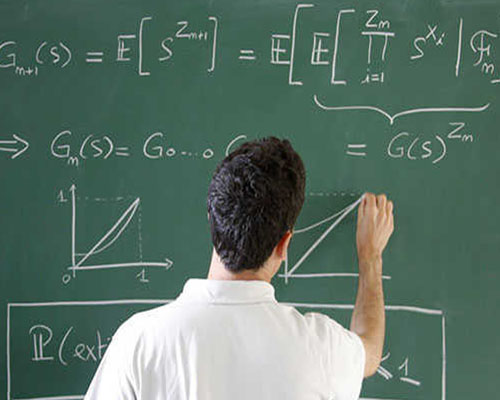 G_{m+1}(s) = 𝔼[s^{Z_{m+1}}] = 𝔼[𝔼[∏_{i=1}^{Z_m} s^{X_i} | ℱ_m
⇒ G_m(s) = G∘...∘ = G(s)^{Z_m}
1
0 1
ℙ(exti 1